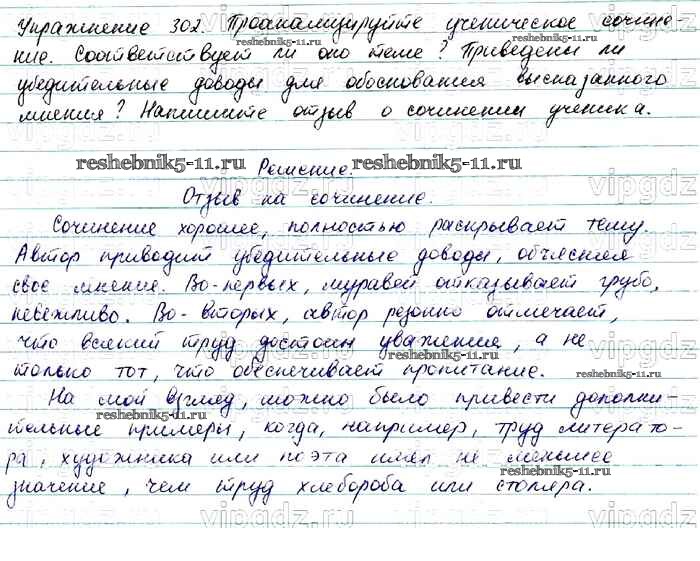 Упражнение 302. Проанализируйте ученическое сочине-
ние. Соответствует ли оно теме? Приведены ли
убедительные доводы для обоснования высказанного
мнения? Напишите отзыв о сочинении ученика.
reshebnik5-11.ru
Решение.
reshebnik5-11.ru
Отзыв на сочинение.
Сочинение хорошее, полностью раскрывает тему.
Автор приводит убедительные доводы, объясняя
свое мнение. Во-первых, муравей отказывает грубо,
невежливо. Во-вторых, автор резонно отмечает,
что всякий труд достоин уважения, а не
только тот, что обеспечивает пропитание.
На мой взгляд, можно было привести дополни-
тельные примеры, когда, например, труд литерато-
ра, художника или поэта имел не меньшее
значение, чем труд хлебороба или столяра.
reshebnik5-11.ru
reshebnik5-11.ru
reshebnik5-11.ru
reshebnik5-11.ru
vipgdz.ru